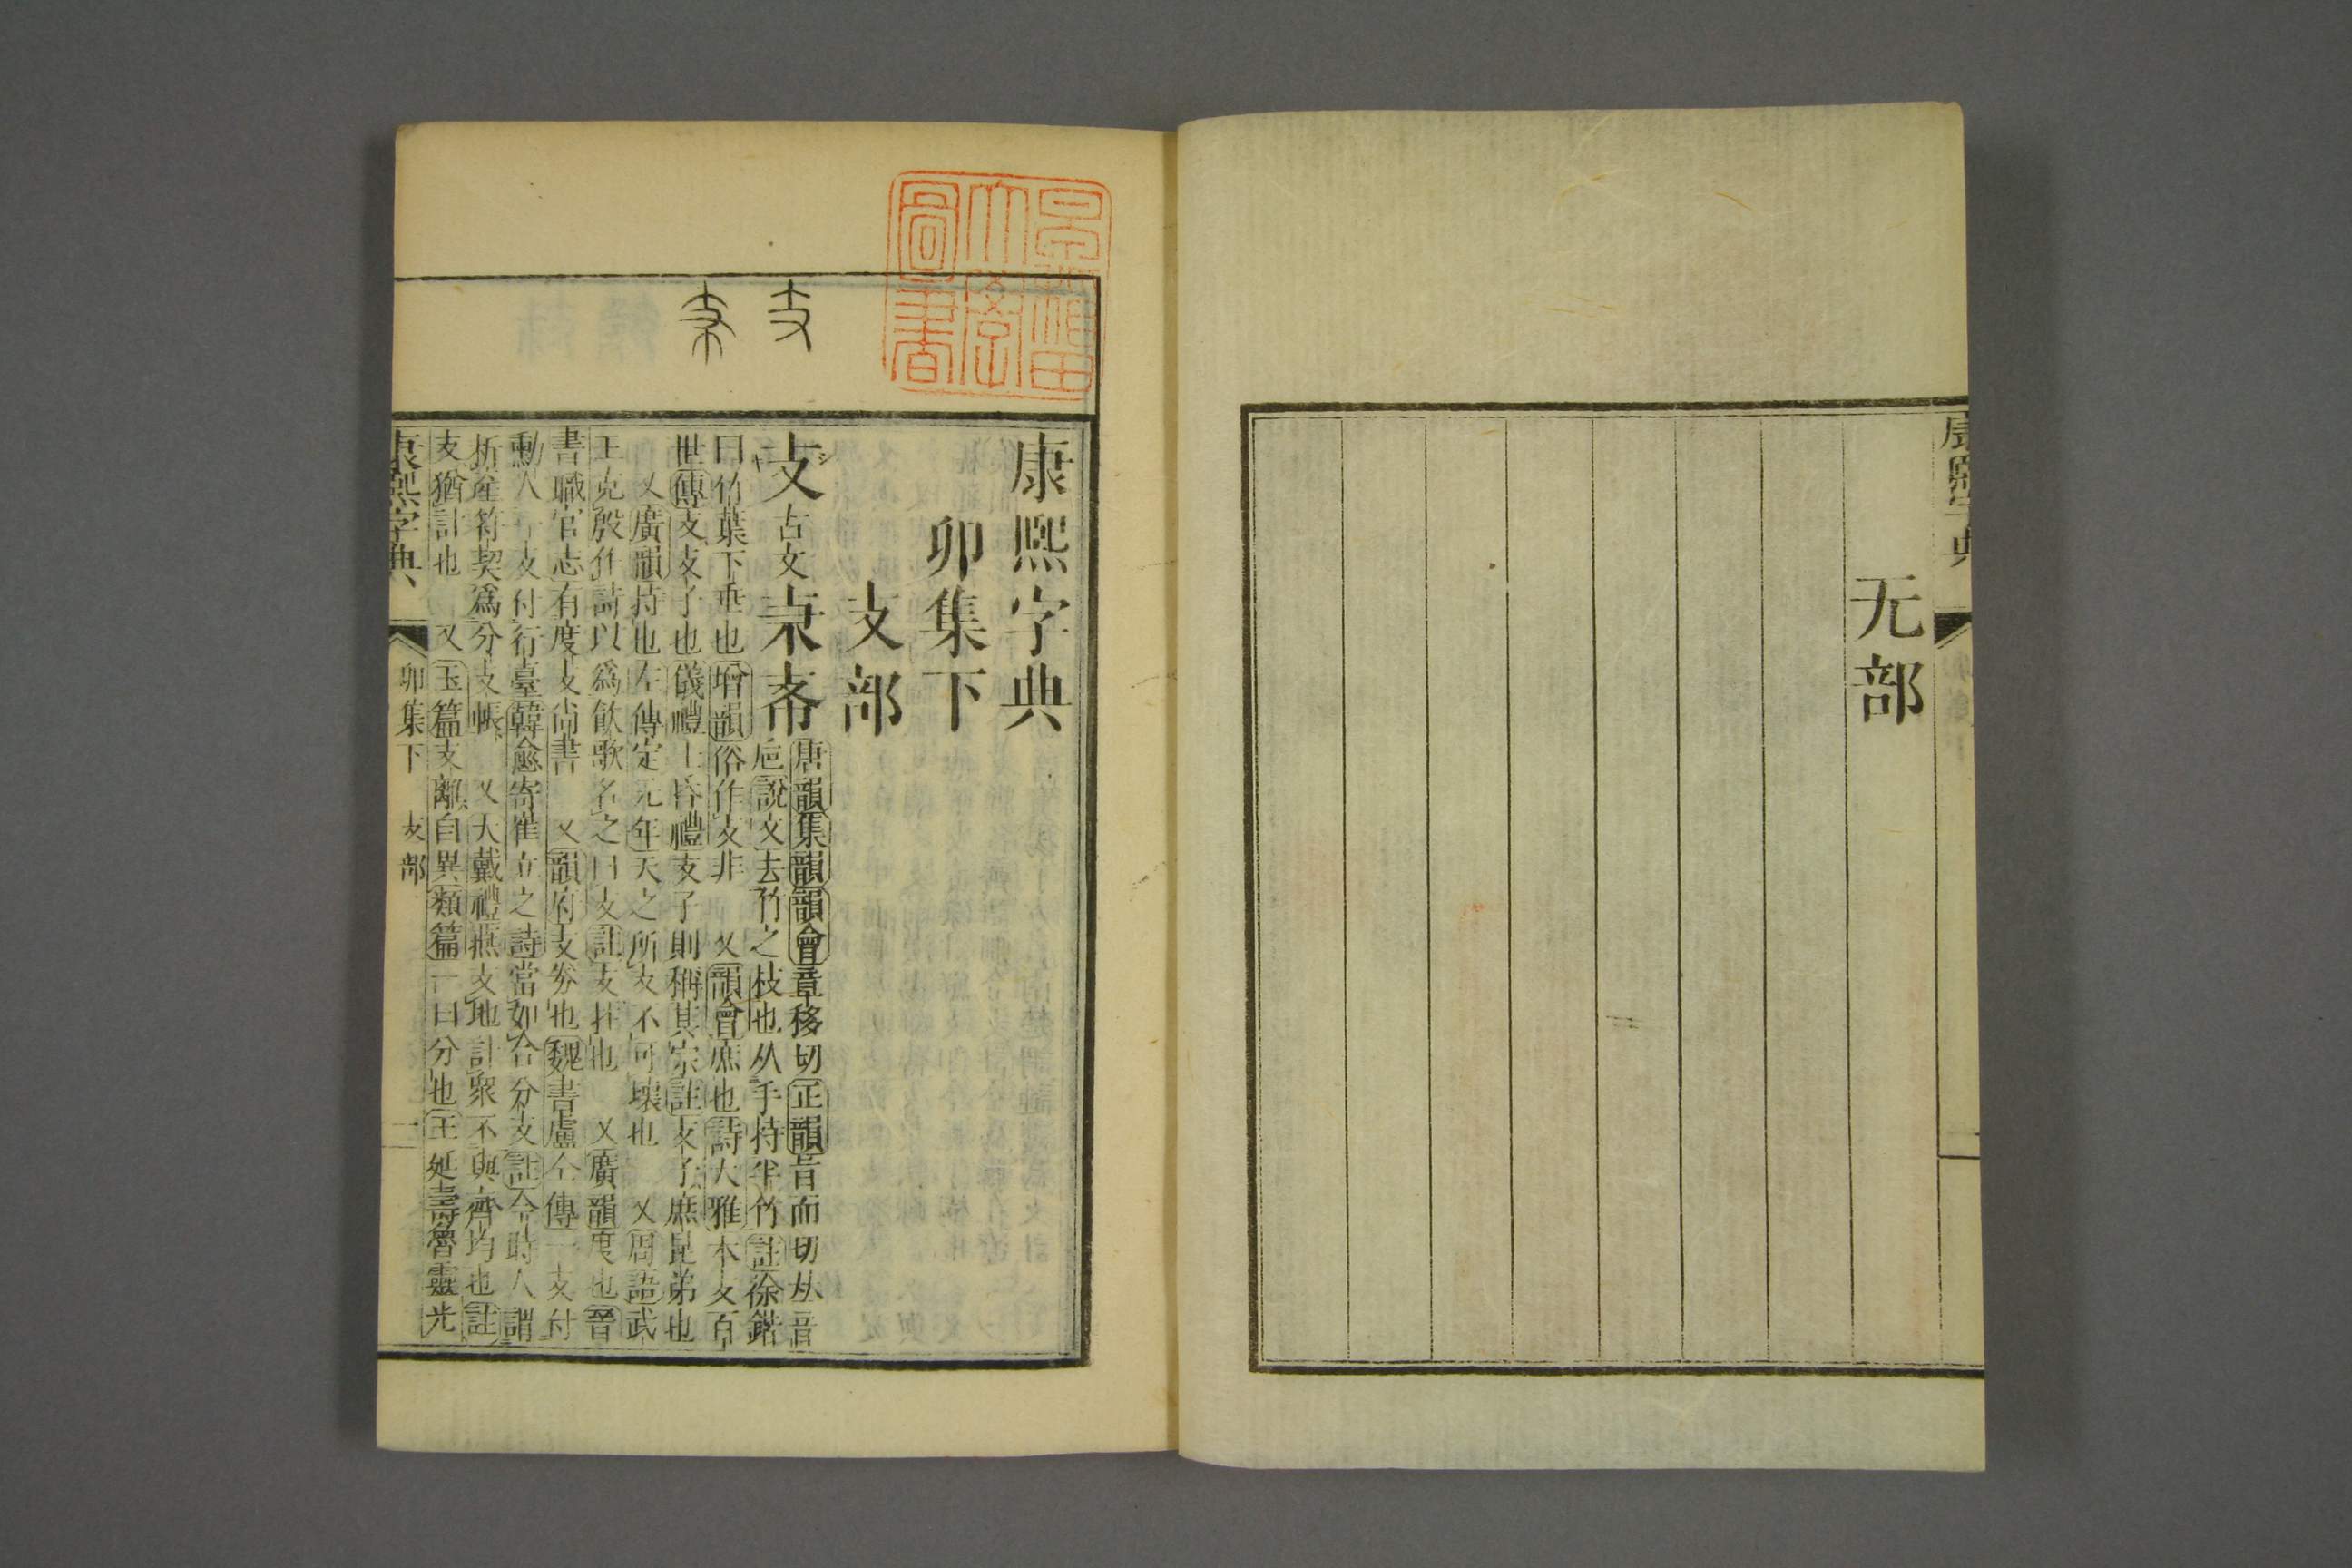 康熙字典
无部
二
早稲田
大學
圖書
康熙字典
卯集下
支部
支 古文
唐韻集韻韻會章移切正韻旨而切𠀤音
巵說文去竹之枝也从手持半竹註徐鍇
曰竹葉下垂也增韻俗作攴非 又韻會庶也詩大雅本支百
世傳支支子也儀禮士昏禮支子則稱其宗註支子庶昆弟也
又廣韻持也左傳定元年天之所支不可壞也 又周語武
王克殷作詩以爲飫歌名之曰支註支拄也 又廣韻度也晉
書職官志有度支尚書 又韻府支券也魏書盧仝傳一支付
勳人一支付行臺韓愈寄崔立之詩當如合分支註今時人謂
析產符契爲分支帳 又大戴禮燕支地計衆不與齊均也註
支猶計也 又玉篇支離自異類篇一曰分也王延壽魯靈光
康熙字典 卯集下 支部 二